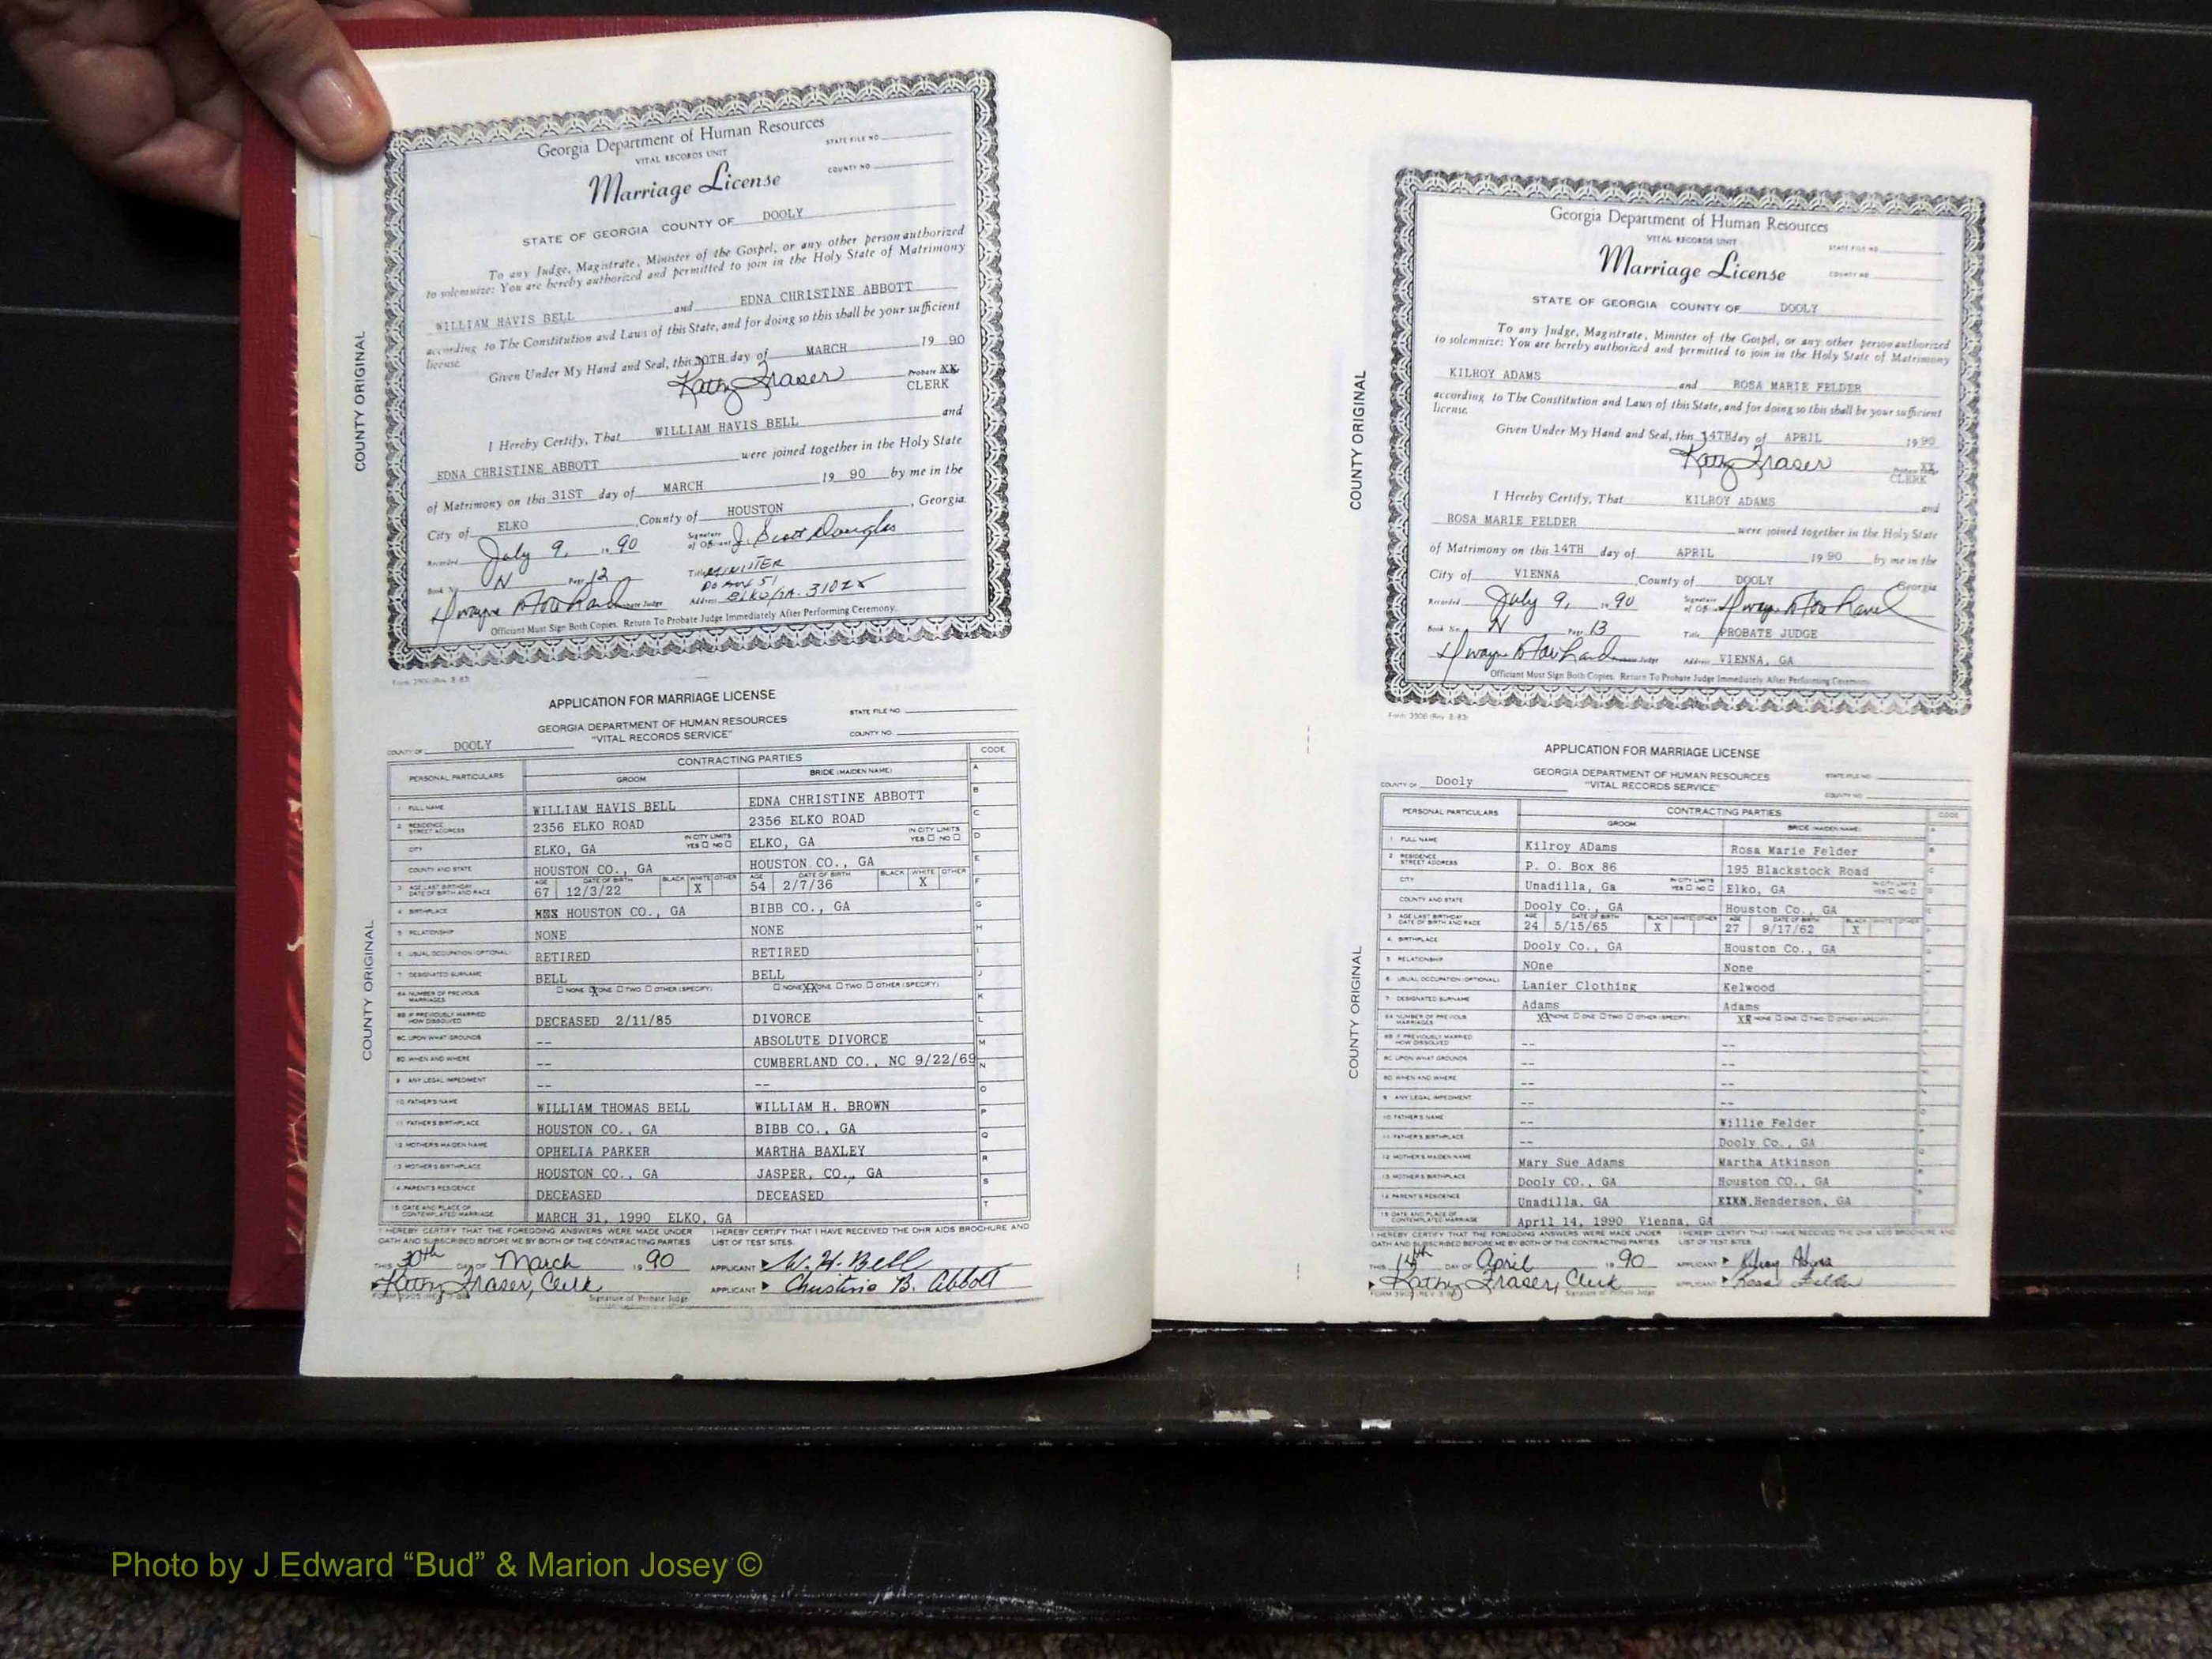 Georgia Department of Human Resources
VITAL RECORDS UNIT
STATE FILE NO
Marriage License
COUNTY NO.
STATE OF GEORGIA COUNTY OF DOOLY
To any Judge, Magistrate, Minister of the Gospel, or any other person authorized
to solemnize: You are hereby authorized and permitted to join in the Holy State of Matrimony
WILLIAM HAVIS BELL and EDNA CHRISTINE ABBOTT
according to The Constitution and Laws of this State, and for doing so this shall be your sufficient
license.
Given Under My Hand and Seal, this 30TH day of MARCH 19 90
Kathy Fraser Probate XX
CLERK
I Hereby Certify, That WILLIAM HAVIS BELL and
EDNA CHRISTINE ABBOTT were joined together in the Holy State
of Matrimony on this 31ST day of MARCH 19 90 by me in the
City of ELKO, County of HOUSTON, Georgia.
Recorded July 9, 19 90 Signature of Officiant J. Scott Douglas
Book No. N Page 12 Title MINISTER
PO BOX 51
Probate Judge Address ELKO, GA. 31025
Officiant Must Sign Both Copies. Return To Probate Judge Immediately After Performing Ceremony.
Form 3906 (Rev. 8-83)
COUNTY ORIGINAL
APPLICATION FOR MARRIAGE LICENSE
GEORGIA DEPARTMENT OF HUMAN RESOURCES STATE FILE NO
"VITAL RECORDS SERVICE" COUNTY NO.
COUNTY OF DOOLY
PERSONAL PARTICULARS CONTRACTING PARTIES CODE
GROOM BRIDE (MAIDEN NAME)
1 FULL NAME WILLIAM HAVIS BELL EDNA CHRISTINE ABBOTT
2 RESIDENCE STREET ADDRESS 2356 ELKO ROAD 2356 ELKO ROAD
CITY ELKO, GA IN CITY LIMITS YES NO ELKO, GA IN CITY LIMITS YES NO
COUNTY AND STATE HOUSTON CO., GA HOUSTON CO., GA
3 AGE LAST BIRTHDAY DATE OF BIRTH AND RACE AGE 67 DATE OF BIRTH 12/3/22 BLACK WHITE X OTHER AGE 54 DATE OF BIRTH 2/7/36 BLACK WHITE X OTHER
4 BIRTHPLACE HOUSTON CO., GA BIBB CO., GA
5 RELATIONSHIP NONE NONE
6 USUAL OCCUPATION (OPTIONAL) RETIRED RETIRED
7 DESIGNATED SURNAME BELL BELL
8A NUMBER OF PREVIOUS MARRIAGES NONE X ONE TWO OTHER (SPECIFY) NONE XX ONE TWO OTHER (SPECIFY)
8B IF PREVIOUSLY MARRIED HOW DISSOLVED DECEASED 2/11/85 DIVORCE
8C UPON WHAT GROUNDS -- ABSOLUTE DIVORCE
8D WHEN AND WHERE -- CUMBERLAND CO., NC 9/22/69
9 ANY LEGAL IMPEDIMENT -- --
10 FATHER'S NAME WILLIAM THOMAS BELL WILLIAM H. BROWN
11 FATHER'S BIRTHPLACE HOUSTON CO., GA BIBB CO., GA
12 MOTHER'S MAIDEN NAME OPHELIA PARKER MARTHA BAXLEY
13 MOTHER'S BIRTHPLACE HOUSTON CO., GA JASPER, CO., GA
14 PARENT'S RESIDENCE DECEASED DECEASED
15 DATE AND PLACE OF CONTEMPLATED MARRIAGE MARCH 31, 1990 ELKO, GA
I HEREBY CERTIFY THAT THE FOREGOING ANSWERS WERE MADE UNDER I HEREBY CERTIFY THAT I HAVE RECEIVED THE DHR AIDS BROCHURE AND
OATH AND SUBSCRIBED BEFORE ME BY BOTH OF THE CONTRACTING PARTIES. LIST OF TEST SITES.
THIS 30th DAY OF March 19 90 APPLICANT W. H. Bell
Kathy Fraser, Clerk APPLICANT Christine B. Abbott
Signature of Probate Judge
COUNTY ORIGINAL
Georgia Department of Human Resources
VITAL RECORDS UNIT
STATE FILE NO
Marriage License
COUNTY NO
STATE OF GEORGIA COUNTY OF DOOLY
To any Judge, Magistrate, Minister of the Gospel, or any other person authorized
to solemnize: You are hereby authorized and permitted to join in the Holy State of Matrimony
KILROY ADAMS and ROSA MARIE FELDER
according to The Constitution and Laws of this State, and for doing so this shall be your sufficient
license.
Given Under My Hand and Seal, this 14TH day of APRIL 19 90
Kathy Fraser Probate Judge XX
CLERK
I Hereby Certify, That KILROY ADAMS and
ROSA MARIE FELDER were joined together in the Holy State
of Matrimony on this 14TH day of APRIL 19 90 by me in the
City of VIENNA, County of DOOLY Georgia
Recorded July 9, 19 90 Signature of Officiant
Book No. N Page 13 Title PROBATE JUDGE
Probate Judge Address VIENNA, GA
Officiant Must Sign Both Copies. Return To Probate Judge Immediately After Performing Ceremony.
Form 3906 (Rev. 8-83)
COUNTY ORIGINAL
APPLICATION FOR MARRIAGE LICENSE
GEORGIA DEPARTMENT OF HUMAN RESOURCES STATE FILE NO
"VITAL RECORDS SERVICE" COUNTY NO.
COUNTY OF Dooly
PERSONAL PARTICULARS CONTRACTING PARTIES CODE
GROOM BRIDE (MAIDEN NAME)
1 FULL NAME Kilroy ADams Rosa Marie Felder
2 RESIDENCE STREET ADDRESS P. O. Box 86 195 Blackstock Road
CITY Unadilla, Ga IN CITY LIMITS YES NO Elko, GA IN CITY LIMITS YES NO
COUNTY AND STATE Dooly Co., GA Houston Co., GA
3 AGE LAST BIRTHDAY DATE OF BIRTH AND RACE AGE 24 DATE OF BIRTH 5/15/65 BLACK X WHITE OTHER AGE 27 DATE OF BIRTH 9/17/62 BLACK X
4 BIRTHPLACE Dooly Co., GA Houston Co., GA
5 RELATIONSHIP NOne None
6 USUAL OCCUPATION (OPTIONAL) Lanier Clothing Kelwood
7 DESIGNATED SURNAME Adams Adams
8A NUMBER OF PREVIOUS MARRIAGES XX NONE ONE TWO OTHER (SPECIFY) XX NONE ONE TWO OTHER (SPECIFY)
8B IF PREVIOUSLY MARRIED HOW DISSOLVED -- --
8C UPON WHAT GROUNDS -- --
8D WHEN AND WHERE -- --
9 ANY LEGAL IMPEDIMENT -- --
10 FATHER'S NAME -- Willie Felder
11 FATHER'S BIRTHPLACE -- Dooly Co., GA
12 MOTHER'S MAIDEN NAME Mary Sue Adams Martha Atkinson
13 MOTHER'S BIRTHPLACE Dooly CO., GA Houston CO., GA
14 PARENT'S RESIDENCE Unadilla, GA Henderson, GA
15 DATE AND PLACE OF CONTEMPLATED MARRIAGE April 14, 1990 Vienna, GA
I HEREBY CERTIFY THAT THE FOREGOING ANSWERS WERE MADE UNDER I HEREBY CERTIFY THAT I HAVE RECEIVED THE DHR AIDS BROCHURE AND
OATH AND SUBSCRIBED BEFORE ME BY BOTH OF THE CONTRACTING PARTIES. LIST OF TEST SITES.
THIS 14th DAY OF April 19 90 APPLICANT Kilroy Adams
Kathy Fraser, Clerk APPLICANT Rosa Felder
Signature of Probate Judge
COUNTY ORIGINAL
Photo by J Edward “Bud” & Marion Josey ©